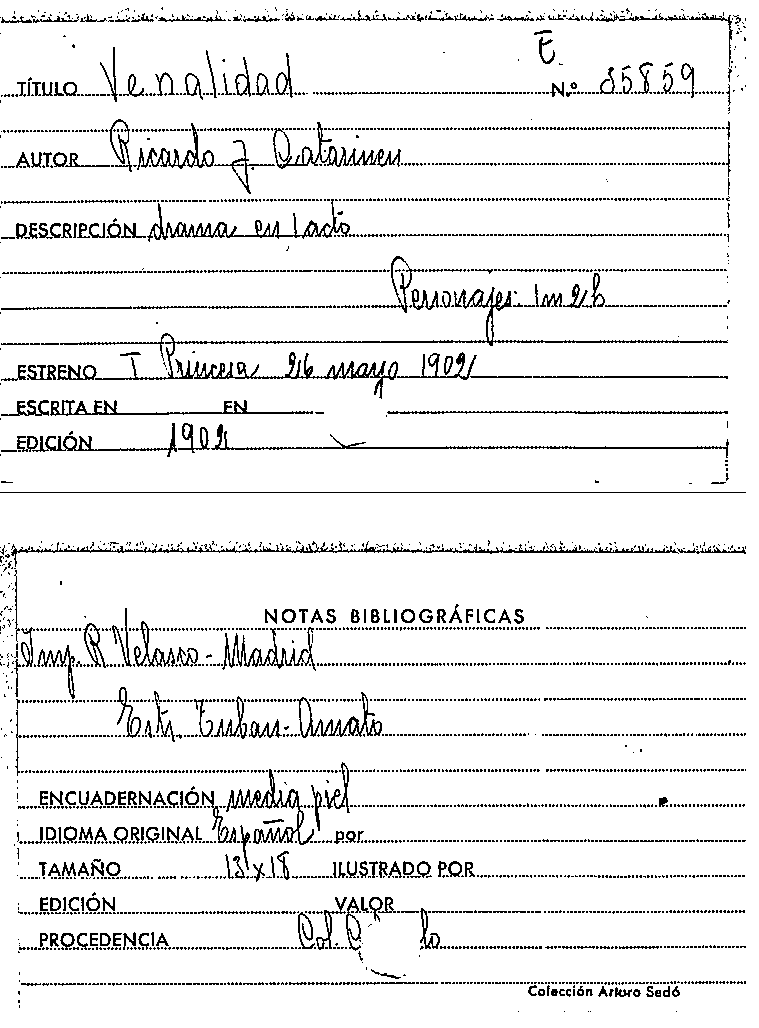 E.
TÍTULO Venalidad N.º 35859
AUTOR Ricardo J. Catarineu
DESCRIPCIÓN drama en 1 acto
Personajes: 1m 2h
ESTRENO T Princesa 26 mayo 1902
ESCRITA EN EN
EDICIÓN 1902
NOTAS BIBLIOGRÁFICAS
Imp. R Velasco - Madrid
Estr. Tubau - Amato
ENCUADERNACIÓN media piel
IDIOMA ORIGINAL Español por
TAMAÑO 13 x 18 ILUSTRADO POR
EDICIÓN VALOR
PROCEDENCIA Col.
Colección Arturo Sedó